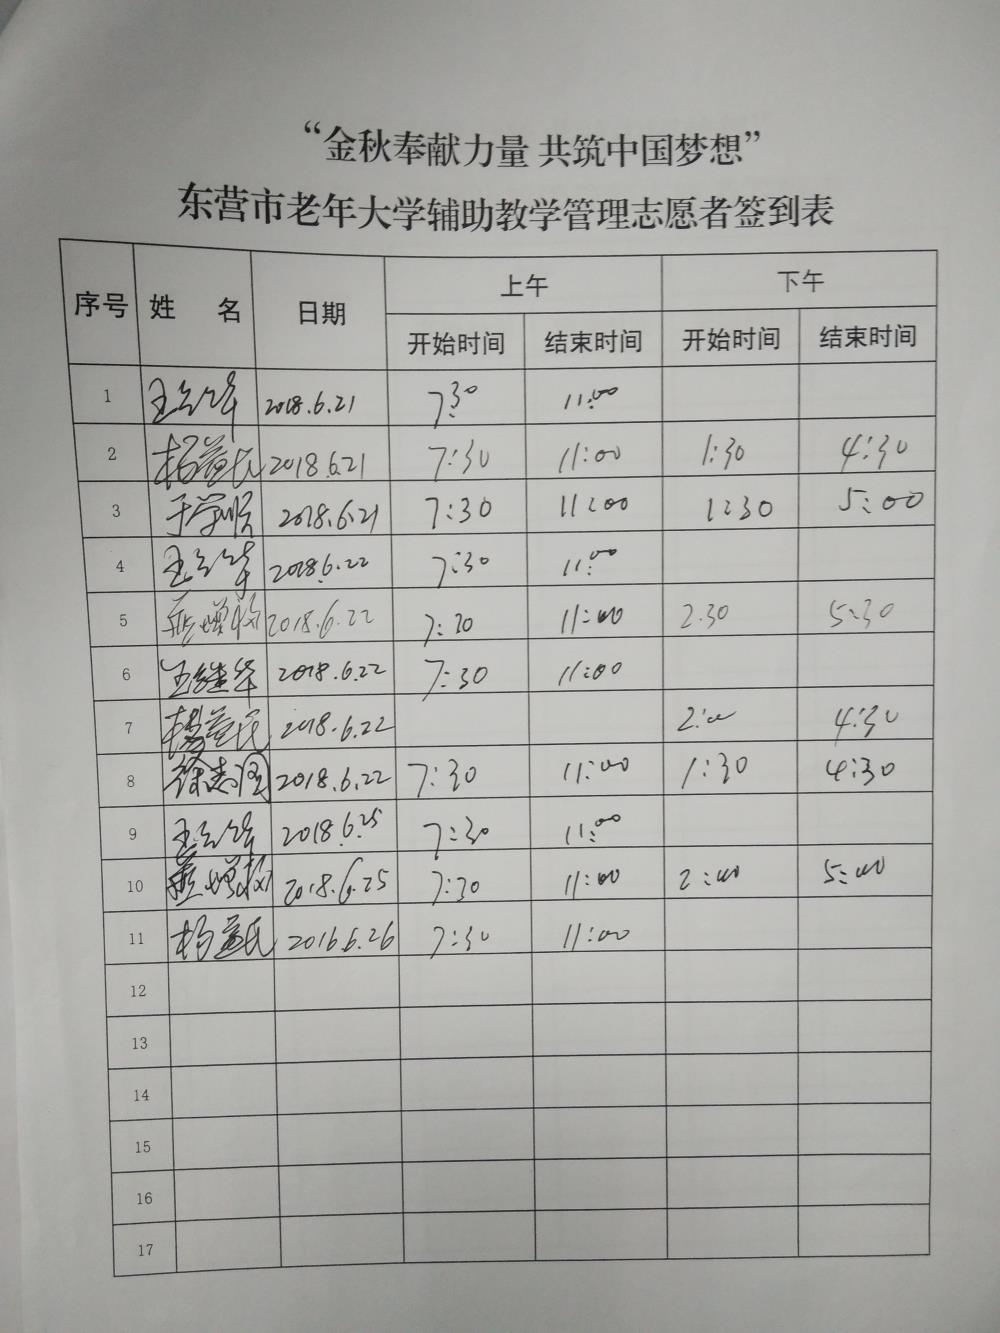 “金秋奉献力量 共筑中国梦想”
东营市老年大学辅助教学管理志愿者签到表
序号 姓 名 日期 上午 下午
开始时间 结束时间 开始时间 结束时间
1 2018.6.21 7:30 11:00
2 杨益民 2018.6.21 7:30 11:00 1:30 4:30
3 于学顺 2018.6.21 7:30 11:00 1:30 5:00
4 2018.6.22 7:30 11:00
5 2018.6.22 7:30 11:00 2:30 5:30
6 王继华 2018.6.22 7:30 11:00
7 杨益民 2018.6.22 2:00 4:30
8 2018.6.22 7:30 11:00 1:30 4:30
9 2018.6.25 7:30 11:00
10 2018.6.25 7:30 11:00 2:00 5:00
11 杨益民 2016.6.26 7:30 11:00
12
13
14
15
16
17